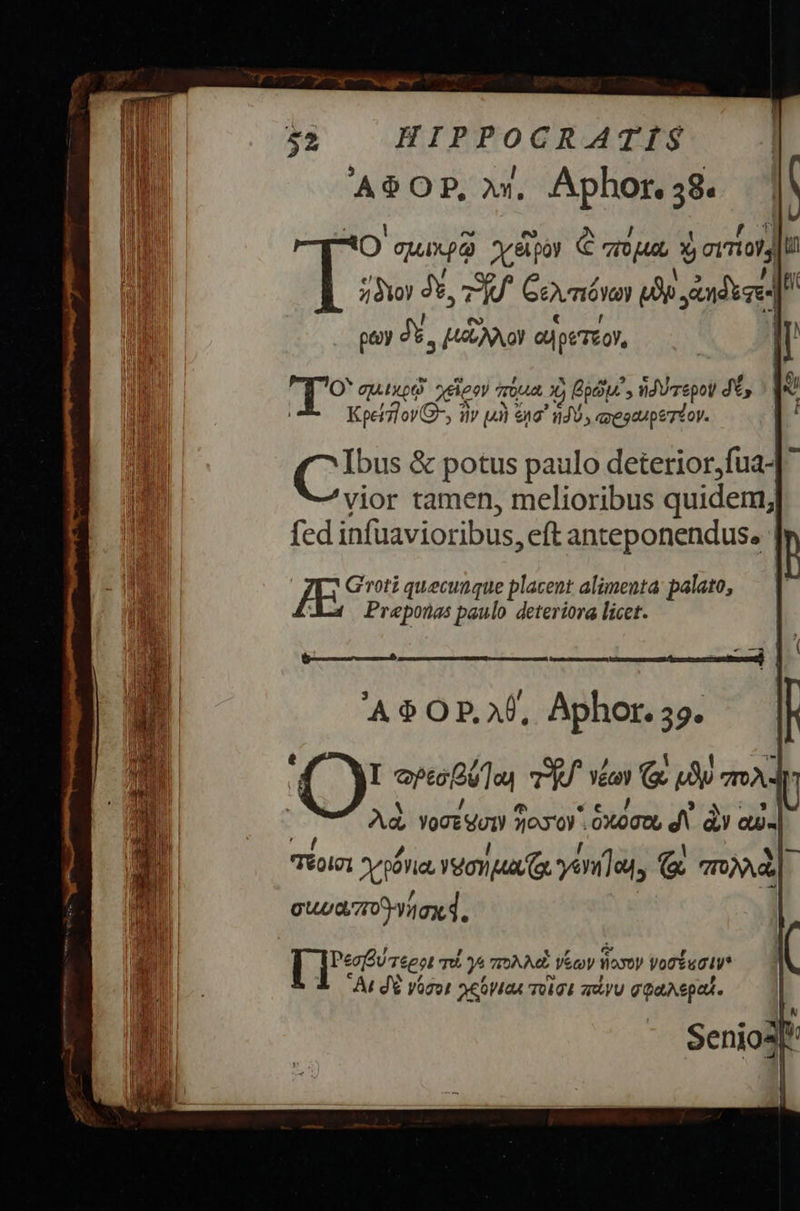 52 HIPPOCRATIS
ἈΦΟΡ. λή. Aphor. 38.
ΤΟ σμικρῷ χεῖρον καὶ πόμα καὶ σιτίον,
ἥδιον δὲ, τῶν βελτιόνων μὲν, ἀηδεστέ-
ρων δὲ, μᾶλλον αἱρετέον.
ΤΟ σμικρῷ χεῖρον πόμα καὶ βρῶμ', ἡδύτερον δέ,
Κρείττονος, ἢν μὴ ἔησ' ἡδὺ, προαιρετέον.
Cibus & potus paulo deterior, sua-
vior tamen, melioribus quidem,
sed insuavioribus, est anteponendus.
Ægroti quæcunque placent alimenta palato,
Præponas paulo deteriora licet.
ἈΦΟΡ. λθ΄. Aphor. 39.
ΟἹ πρεσβύται τῶν νέων τὰ μὲν πολ-
λὰ νοσέουσιν ἧσσον· ὁκόσα δ' ἂν αὐ-
τέοισι χρόνια νουσήματα γένηται, τὰ πολλὰ
συναποθνήσκει.
ΠΡεσβύτεροι τά γε πολλὰ νέων ἧσσον νοσέουσιν·
Αἱ δὲ νόσοι χρόνιαι τοῖσι πάνυ σφαλεραί.
Senio-